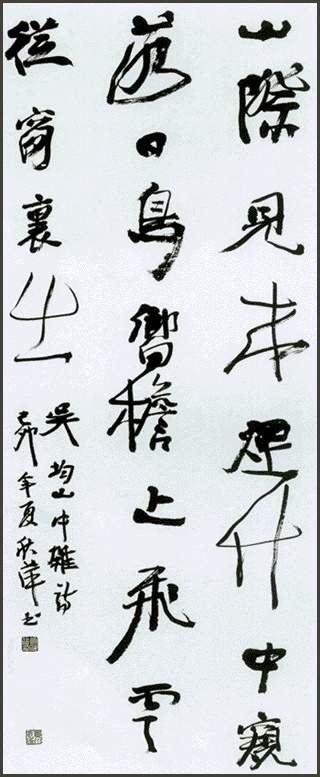 山際見来煙竹中窺
落日鳥嚮檐上飛雲
從窗裏出
吳均山中雜詩
己卯年夏秋书